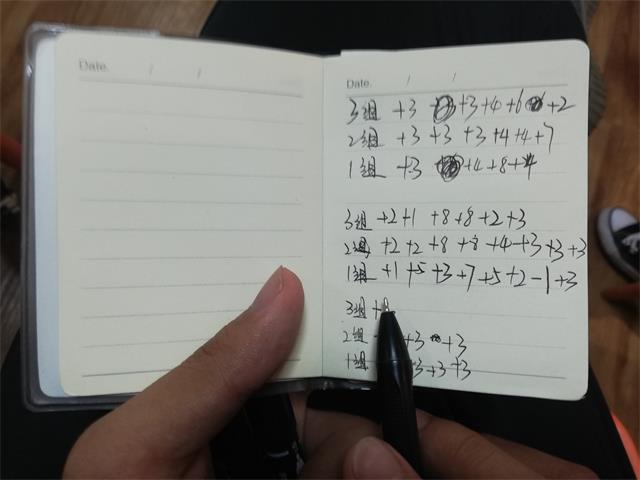 Date.
Date.
3组 +3 +3+4+6 +2
2组 +3 +3 +3 +4+4+7
1组 +3 +4+8+4
3组 +2+1 +8+8+2+3
2组 +2+2+8+8+4+3+3+3
1组 +1+5+3+7+5+2-1+3
3组 +
2组 +3 +3
1组 +3+3